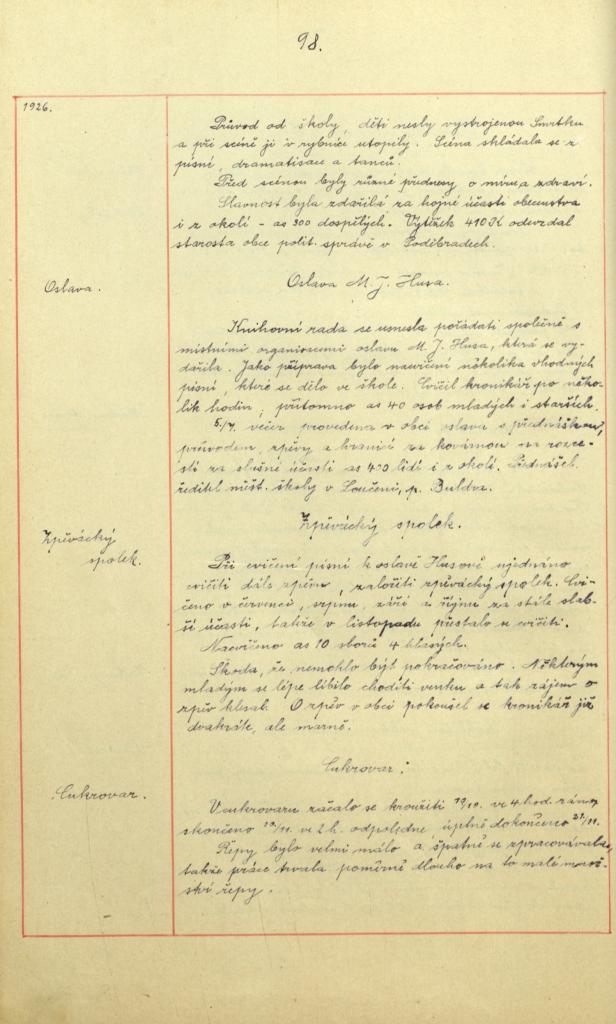 98.
1926.
Průvod od školy, děti nesly vystrojenou Smrtku
a při scéně ji v rybníce utopily. Scéna skládala se z
písní, dramatisace a tanců.
Před scénou byly různé přednesy o míru a zdraví.
Slavnost byla zdařilá za hojné účasti obecenstva
i z okolí - as 300 dospělých. Výtěžek 410 K odevzdal
starosta obce polit. správě v Poděbradech.
Oslava.
Oslava M. J. Husa.
Knihovní rada se usnesla pořádati společně s
místními organisacemi oslavu M. J. Husa, která se vy-
dařila. Jako příprava bylo nacvičení několika vhodných
písní, které se dělo ve škole. Cvičil kronikář po něko-
lik hodin; přítomno as 40 osob mladých i starších.
5./7. večer provedena v obci oslava s přednáškou,
průvodem, zpěvy a hranicí za kovárnou na rozce-
stí za slušné účasti as 400 lidí i z okolí. Přednášel
ředitel měšť. školy v Loučeni, p. Buldra.
Zpěvácký
spolek.
Zpěvácký spolek.
Při cvičení písní k oslavě Husově ujednáno
cvičiti dále zpěvu, založiti zpěvácký spolek. Cvi-
čeno v červenci, srpnu, září a říjnu za stále slab-
ší účasti, takže v listopadu přestalo se cvičiti.
Nacvičeno as 10 sborů 4 hlasých.
Škoda, že nemohlo býti pokračováno. Některým
mladým se lépe líbilo choditi venku a tak zájem o
zpěv klesal. O zpěv v obci pokoušel se kronikář již
dvakráte, ale marně.
Cukrovar.
Cukrovar:
V cukrovaru začalo se kroužiti 19/10. ve 4 hod. ráno,
skončeno 19/11. ve 2 h. odpoledne, úplně dokončeno 21/11.
Řepy bylo velmi málo a špatně se zpracovávala,
takže práce trvala poměrně dlouho na to malé množ-
ství řepy.